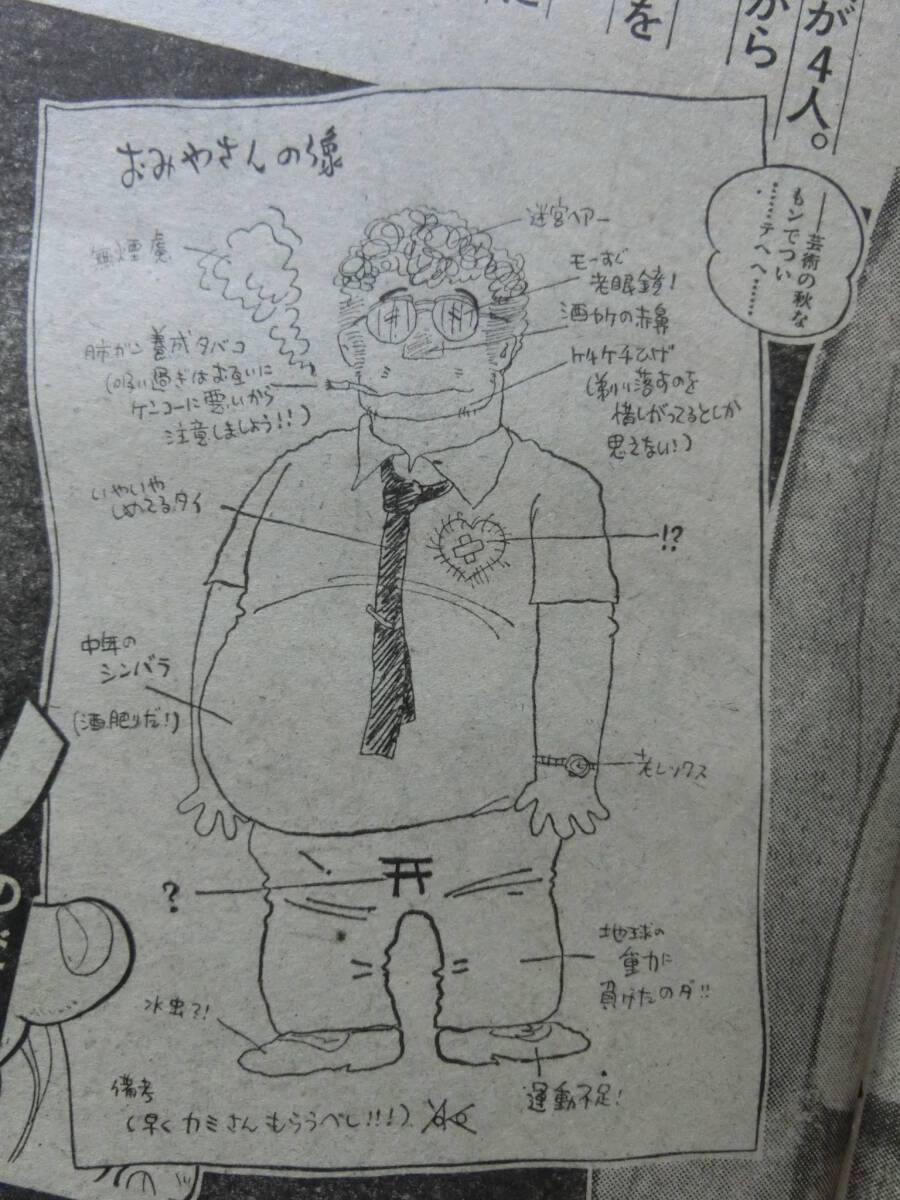 が4人。
から
を
おみやさんの像
無煙慮
迷宮ヘアー
モーすぐ
老眼鏡!
酒ヤケの赤鼻
肺ガン養成タバコ
(吸い過ぎはお互いに
ケンコーに悪いから
注意しましょう!!)
ケチケチひげ
(剃り落すのを
惜しがってるとしか
思えない!)
いやいや
しめてるタイ
!?
中年の
シンバラ
(酒肥りだ!)
老レックス
?
地球の
重力に
負けたのダ!!
水虫?!
運動不足!
備考
(早くカミさんもらうべし!!!)
――芸術の秋な
もンでつい
……テヘヘ……